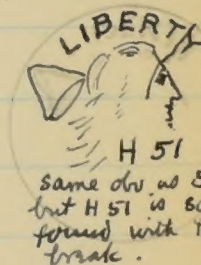 LIBERTY
H 51
same obv. as
but H 51 is
found with
break.